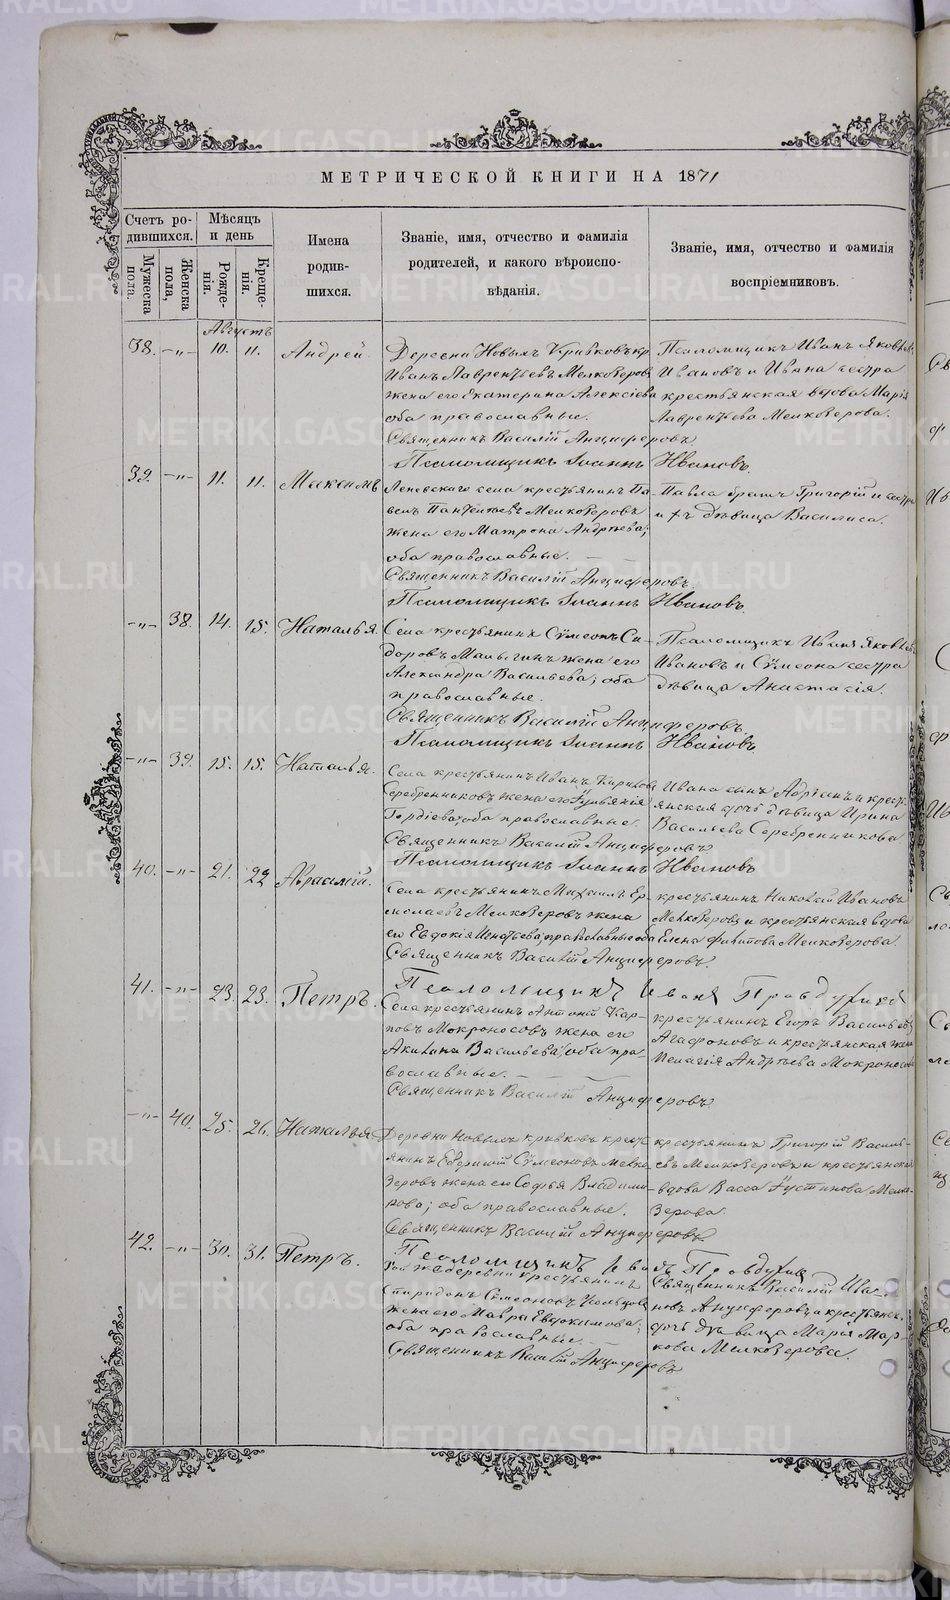 МЕТРИЧЕСКОЙ КНИГИ НА 1871
Счетъ ро-
дившихся.
Мужеска
пола.
Женска
пола,
Мѣсяцъ
и день
Рожде-
нія.
Креще-
нія.
Имена
родив-
шихся.
Званіе, имя, отчество и фамилія
родителей, и какого вѣроиспо-
вѣданія.
Званіе, имя, отчество и фамилія
воспріемниковъ.
Августъ
38. -"- 10. 11. Андрей.
Деревни Новыхъ Кривковъ кр.
Иванъ Лаврентьевъ Мелкозеровъ,
жена его Екатерина Алексіева
оба православные.
Священникъ Василій Анциферовъ
Псаломщикъ Іоаннъ Ивановъ.
Псаломщикъ Иванъ Яковл.
Ивановъ и Ивана сестра
крестьянская вдова Марія
Лаврентьева Мелкозерова.
39. -"- 11. 11. Максимъ
Леневскаго села крестьянинъ Па-
велъ Пантелеевъ Мелкозеровъ
жена его Матрона Андреева;
оба православные.
Священникъ Василій Анциферовъ.
Псаломщикъ Іоаннъ Ивановъ.
Павла братъ Григорій и сестра
дѣвица Василиса.
-"- 38. 14. 15. Наталья.
Села крестьянинъ Сѵмеонъ Си-
доровъ Малыгинъ жена его
Александра Васильева; оба
православные.
Священникъ Василій Анциферовъ.
Псаломщикъ Іоаннъ Ивановъ
Псаломщикъ Иванъ Яковлевъ
Ивановъ и Сѵмеона сестра
дѣвица Анастасія.
-"- 39. 15. 15. Наталья.
Села крестьянинъ Иванъ Кириловъ
Серебренниковъ жена его
Гордіева; оба православные.
Священникъ Василій Анциферовъ
Псаломщикъ Іоаннъ Ивановъ
Ивана сынъ Адріанъ и крест-
янская дочь дѣвица Ирина
Васильева Серебренникова
40. -"- 21. 22 Авраамій.
Села крестьянинъ Михаилъ Ер-
молаевъ Мелкозеровъ жена
его Евдокія Игнатьева; православные оба
Священникъ Василій Анциферовъ.
Псаломщикъ Иванъ Правдухинъ
крестьянинъ Николай Ивановъ
Мелкозеровъ и крестьянская вдова
Елена Филипова Мелкозерова.
41. -"- 23. 23. Петръ.
Села крестьянинъ Антоній Кар-
повъ Мокроносовъ жена его
Акилина Васильева; оба пра-
вославные.
Священникъ Василій Анциферовъ
крестьянинъ Егоръ Васильевъ
Агафоновъ и крестьянская жена
Пелагія Андреева Мокроносова
-"- 40. 25. 26. Наталья
Деревни Новыхъ Кривковъ крест-
янинъ Сѵмеоновъ Мелко-
зеровъ жена его Софья Владими-
рова; оба православные.
Священникъ Василій Анциферовъ
Псаломщикъ Иванъ Правдухинъ
крестьянинъ Григорій Василь-
евъ Мелкозеровъ и крестьянская
вдова Васса Іустинова Мелко-
зерова.
42. -"- 30. 31. Петръ.
Той же деревни крестьянинъ
Спиридонъ Симеоновъ
жена его Мавра Евдокимова;
оба православные.
Священникъ Василій Анциферовъ
Священникъ Василій Ива-
новъ Анциферовъ и крестьянс.
дочь дѣвица Марія Мар-
кова Мелкозерова.
METRIKI.GASO-URAL.RU